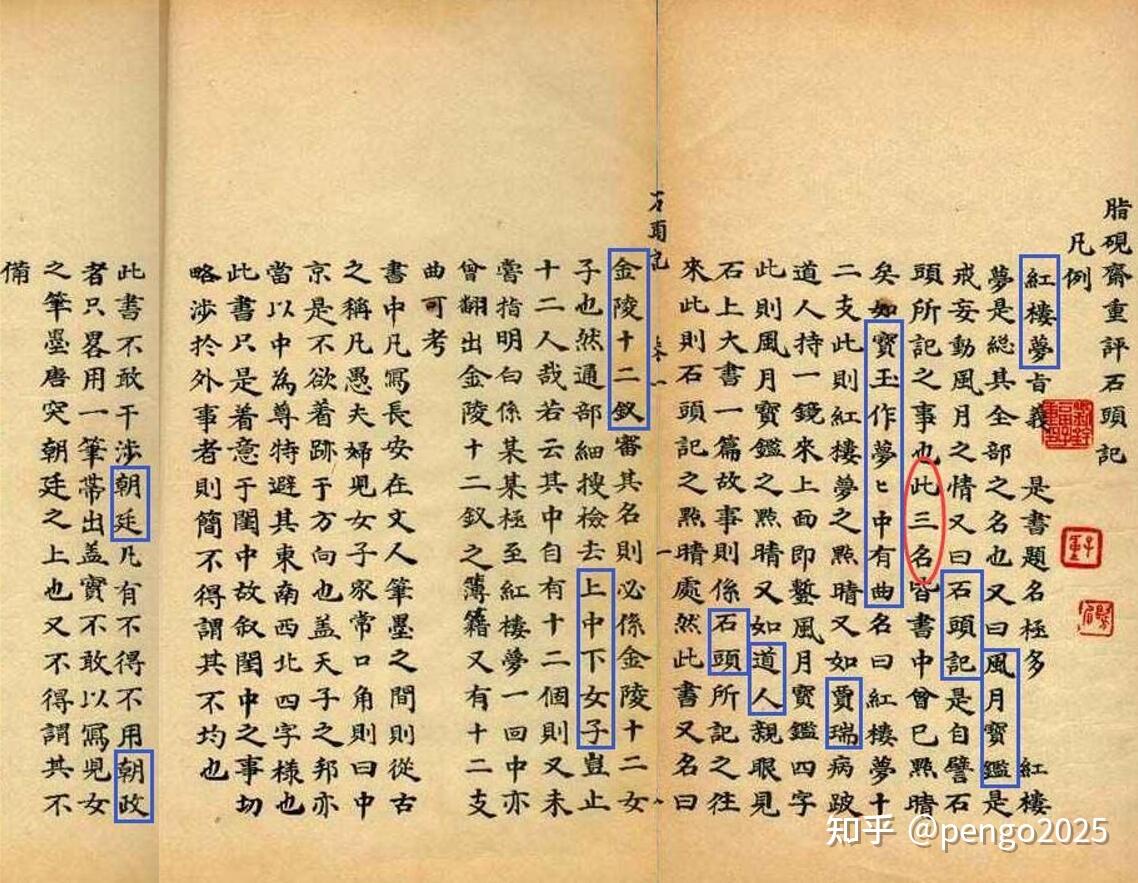 脂硯齋重評石頭記
凡例
紅樓夢旨義 是書題名極多 紅樓
夢是総其全部之名也又曰風月寶鑑是
戒妄動風月之情又曰石頭記是自譬石
頭所記之事也此三名皆書中曾已點晴
矣如寶玉作夢匕中有曲名曰紅樓夢十
二支此則紅樓夢之點晴又如賈瑞病跛
道人持一鏡來上面即鏨風月寶鑑四字
此則風月寶鑑之點晴又如道人親眼見
石上大書一篇故事則係石頭所記之往
來此則石頭記之點晴處然此書又名曰
石頭記
金陵十二釵審其名則必係金陵十二女
子也然通部細搜檢去上中下女子豈止
十二人哉若云其中自有十二個則又未
嘗指明白係某某極至紅樓夢一回中亦
曾翻出金陵十二釵之簿籍又有十二支
曲可考
書中凡寫長安在文人筆墨之間則從古
之稱凡愚夫婦兒女子家常口角則曰中
京是不欲着跡于方向也盖天子之邦亦
當以中為尊特避其東南西北四字樣也
此書只是着意于閨中故叙閨中之事切
略涉於外事者則簡不得謂其不均也
此書不敢干涉朝廷凡有不得不用朝政
者只畧用一筆帶出盖實不敢以寫兒女
之筆墨唐突朝廷之上也又不得謂其不
備
知乎 @pengo2025